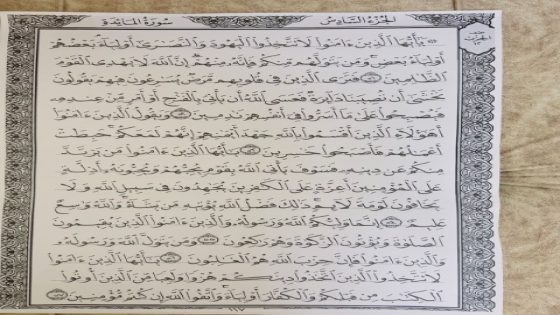 الجزء السادس سورة المائدة
يَٰٓأَيُّهَا ٱلَّذِينَ ءَامَنُوا۟ لَا تَتَّخِذُوا۟ ٱلْيَهُودَ وَٱلنَّصَٰرَىٰٓ أَوْلِيَآءَ بَعْضُهُمْ
أَوْلِيَآءُ بَعْضٍ وَمَن يَتَوَلَّهُم مِّنكُمْ فَإِنَّهُۥ مِنْهُمْ إِنَّ ٱللَّهَ لَا يَهْدِى ٱلْقَوْمَ
ٱلظَّٰلِمِينَ فَتَرَى ٱلَّذِينَ فِى قُلُوبِهِم مَّرَضٌ يُسَٰرِعُونَ فِيهِمْ يَقُولُونَ
نَخْشَىٰٓ أَن تُصِيبَنَا دَآئِرَةٌ فَعَسَى ٱللَّهُ أَن يَأْتِىَ بِٱلْفَتْحِ أَوْ أَمْرٍ مِّنْ عِندِهِۦ
فَيُصْبِحُوا۟ عَلَىٰ مَآ أَسَرُّوا۟ فِىٓ أَنفُسِهِمْ نَٰدِمِينَ وَيَقُولُ ٱلَّذِينَ ءَامَنُوٓا۟
أَهَٰٓؤُلَآءِ ٱلَّذِينَ أَقْسَمُوا۟ بِٱللَّهِ جَهْدَ أَيْمَٰنِهِمْ إِنَّهُمْ لَمَعَكُمْ حَبِطَتْ
أَعْمَٰلُهُمْ فَأَصْبَحُوا۟ خَٰسِرِينَ يَٰٓأَيُّهَا ٱلَّذِينَ ءَامَنُوا۟ مَن يَرْتَدَّ
مِنكُمْ عَن دِينِهِۦ فَسَوْفَ يَأْتِى ٱللَّهُ بِقَوْمٍ يُحِبُّهُمْ وَيُحِبُّونَهُۥٓ أَذِلَّةٍ
عَلَى ٱلْمُؤْمِنِينَ أَعِزَّةٍ عَلَى ٱلْكَٰفِرِينَ يُجَٰهِدُونَ فِى سَبِيلِ ٱللَّهِ وَلَا
يَخَافُونَ لَوْمَةَ لَآئِمٍ ذَٰلِكَ فَضْلُ ٱللَّهِ يُؤْتِيهِ مَن يَشَآءُ وَٱللَّهُ وَٰسِعٌ
عَلِيمٌ إِنَّمَا وَلِيُّكُمُ ٱللَّهُ وَرَسُولُهُۥ وَٱلَّذِينَ ءَامَنُوا۟ ٱلَّذِينَ يُقِيمُونَ
ٱلصَّلَوٰةَ وَيُؤْتُونَ ٱلزَّكَوٰةَ وَهُمْ رَٰكِعُونَ وَمَن يَتَوَلَّ ٱللَّهَ وَرَسُولَهُۥ
وَٱلَّذِينَ ءَامَنُوا۟ فَإِنَّ حِزْبَ ٱللَّهِ هُمُ ٱلْغَٰلِبُونَ يَٰٓأَيُّهَا ٱلَّذِينَ ءَامَنُوا۟
لَا تَتَّخِذُوا۟ ٱلَّذِينَ ٱتَّخَذُوا۟ دِينَكُمْ هُزُوًا وَلَعِبًا مِّنَ ٱلَّذِينَ أُوتُوا۟
ٱلْكِتَٰبَ مِن قَبْلِكُمْ وَٱلْكُفَّارَ أَوْلِيَآءَ وَٱتَّقُوا۟ ٱللَّهَ إِن كُنتُم مُّؤْمِنِينَ